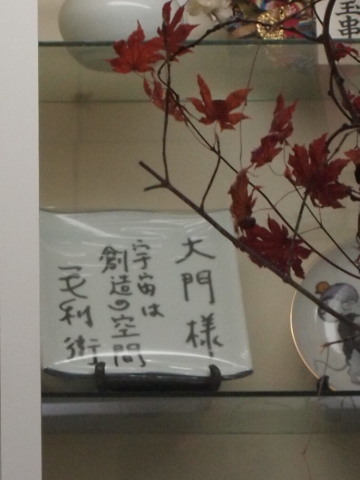 大門様
宇宙は
創造の空間
毛利衛
玉串